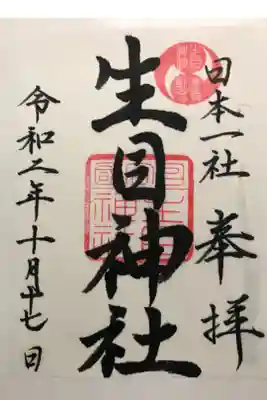 日本一社 奉拝
生目神社
令和二年十月十七日